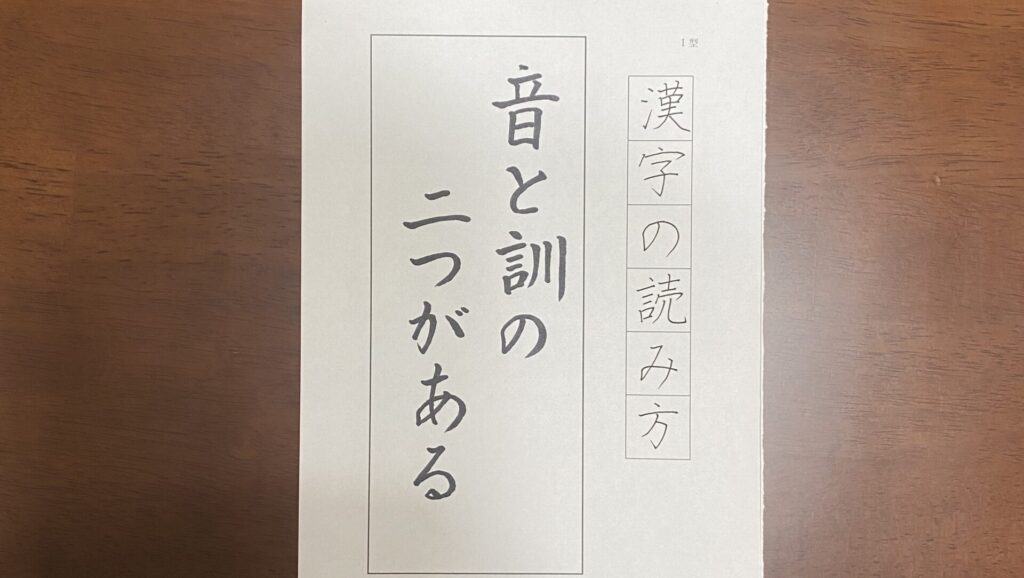 I型
漢字の読み方
音と訓の
二つがある